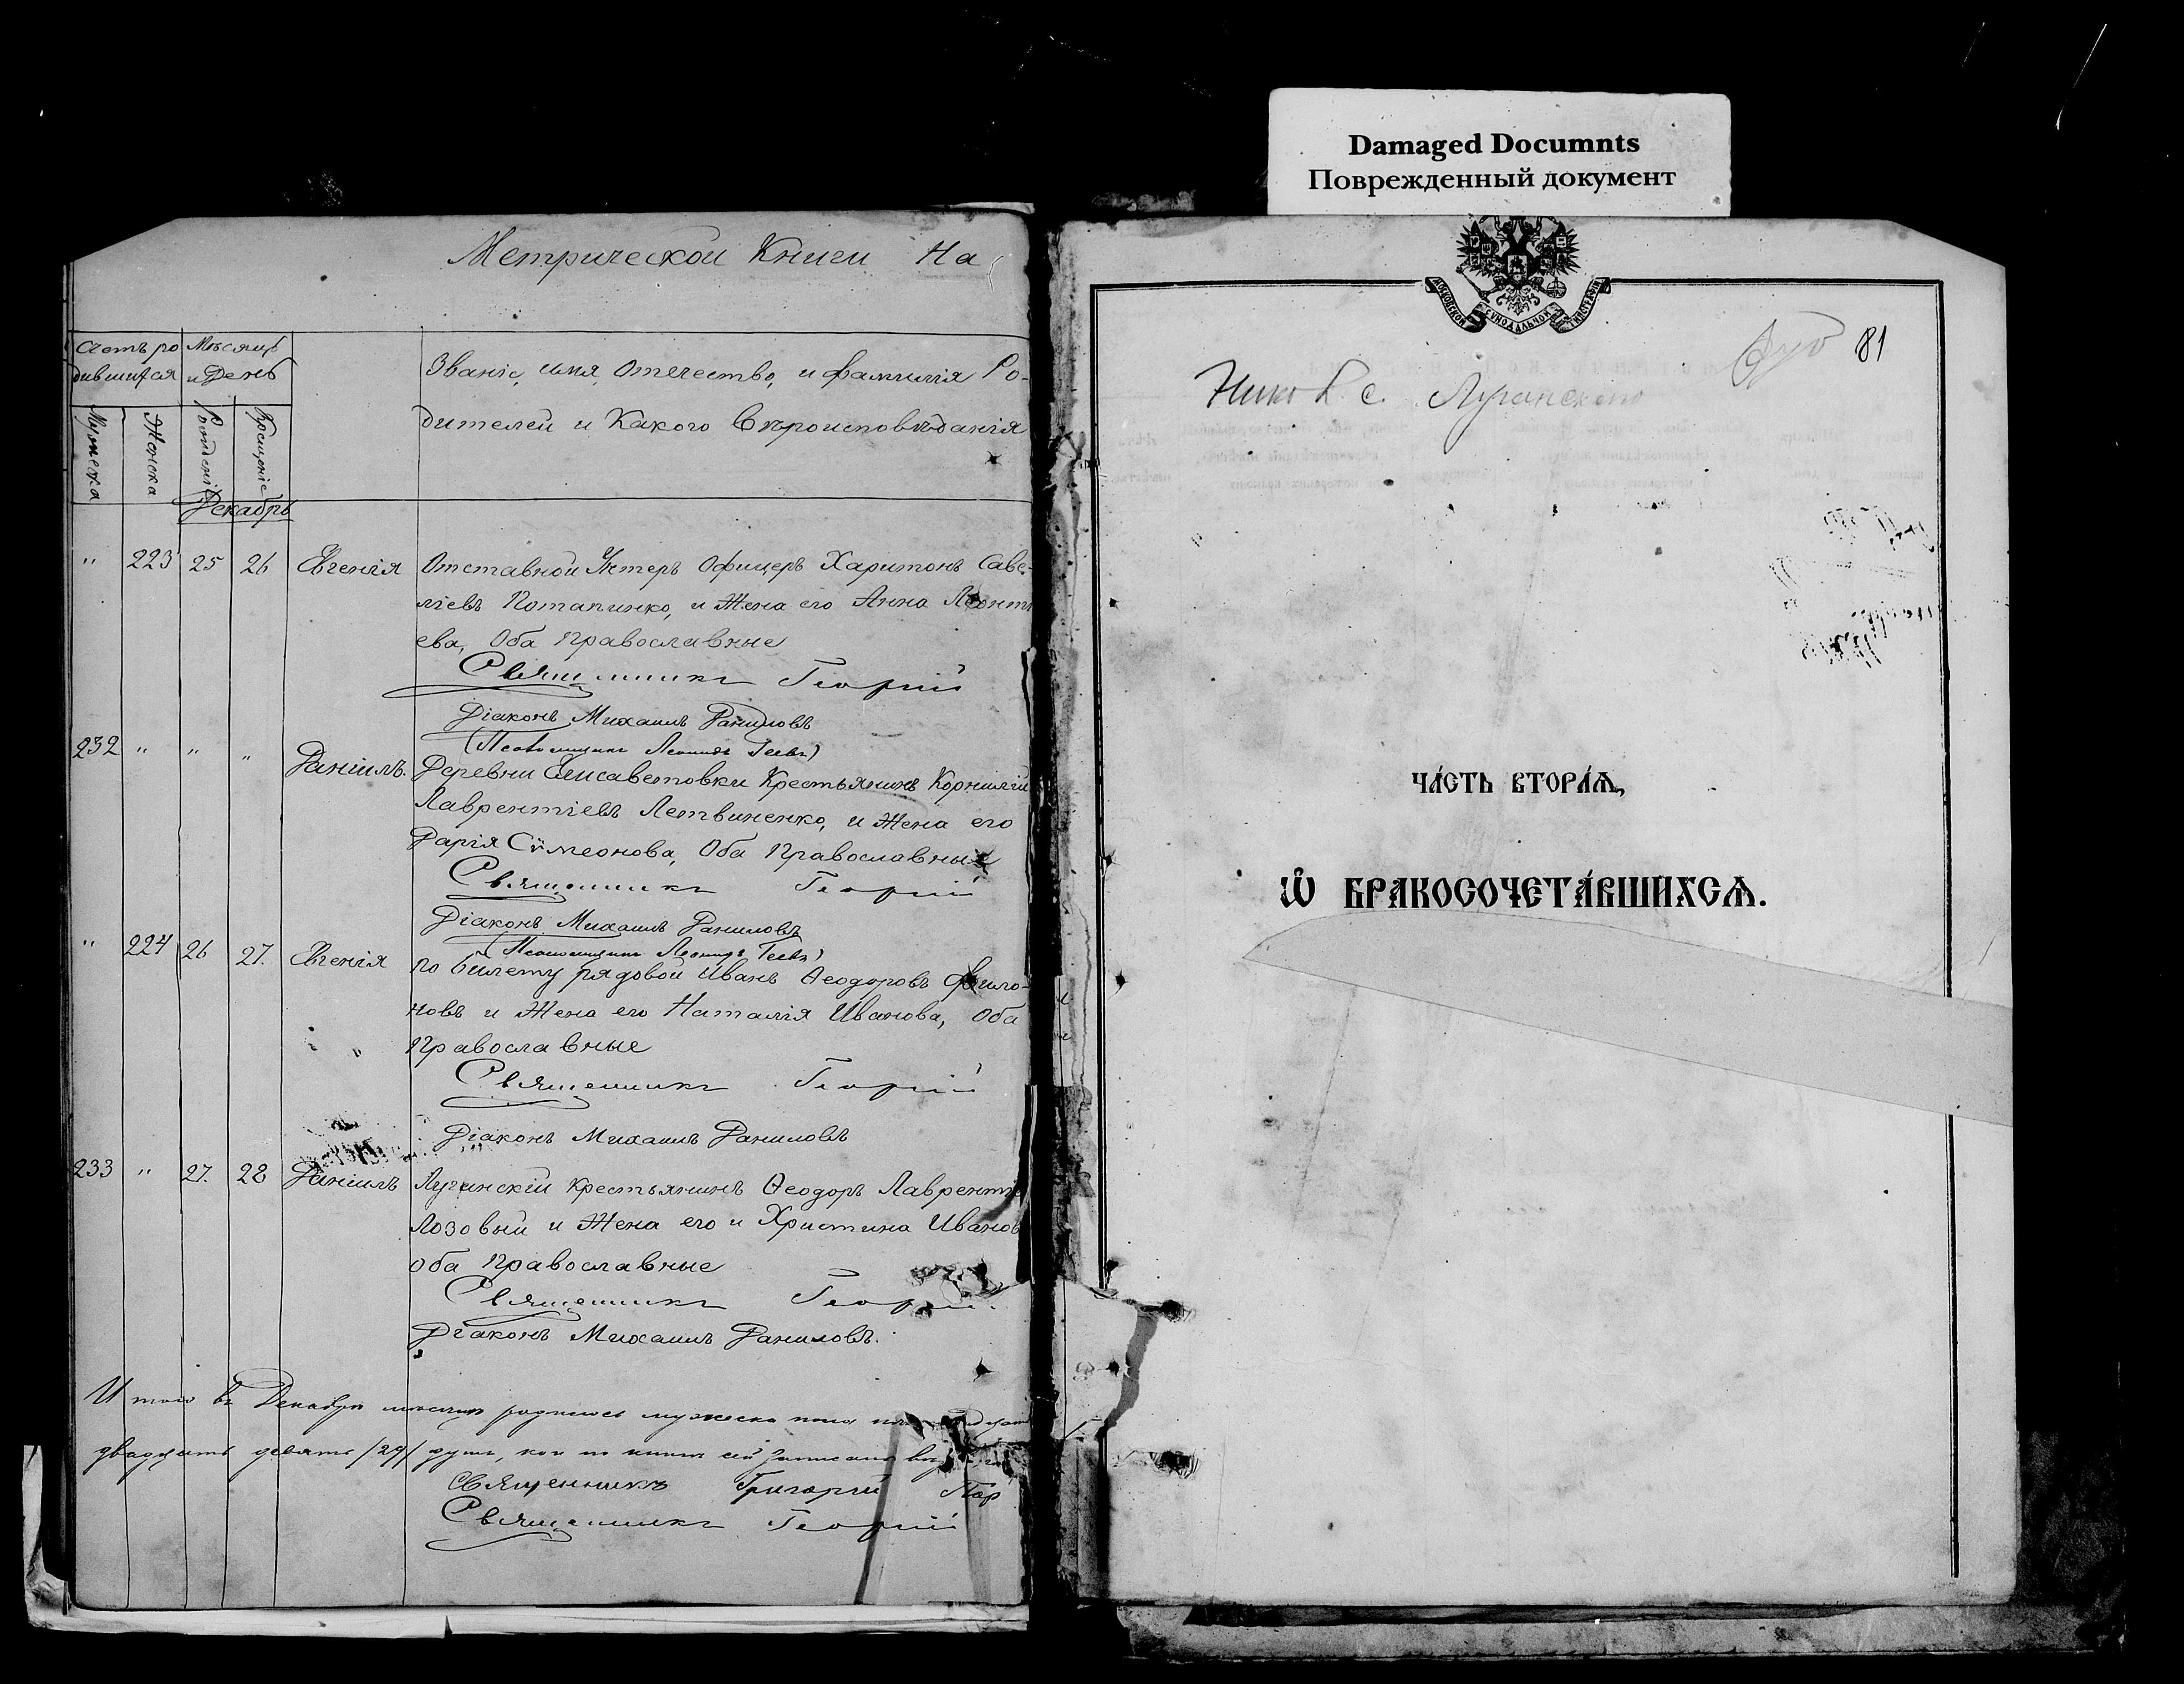 Damaged Documnts
Поврежденный документ
Метрической Книги На
Счетъ ро
дившихся
Мѣсяцъ
и День
Мужеска
Женска
Рожденія
Крещенія
Званіе, имя, Отечество, и фамилія Ро-
дителей и Какого Вѣроисповѣданія
Декабрь
" 223 25 26 Евгенія Отставной Унтеръ Офицеръ Харитонъ Саве-
ліевъ Потапинко, и Жена его Анна Леонть
ева, Оба Православные
Священникъ Георгій
Діаконъ Михаилъ Даниловъ
(Псаломщикъ Леонидъ
232 " " " Даніилъ. Деревни Елисаветовки Крестьянинъ Корнилій
Лаврентіевъ Летвиненко, и Жена его
Дарія Сѵмеонова, Оба Православные
Священникъ Георгій
Діаконъ Михаилъ Даниловъ
(Псаломщикъ Леонидъ
" 224 26 27. Евгенія По билету рядовой Иванъ Ѳеодоровъ Фило-
новъ и Жена его Наталія Иванова, Оба
Православные
Священникъ Георгій
Діаконъ Михаилъ Даниловъ
233 " 27. 28 Даніилъ Луганскій крестьянинъ Ѳеодоръ Лаврентіе
Лозовый и Жена его и Христина Иванов
оба Православные
Священникъ Георгій
Діаконъ Михаилъ Даниловъ.
Итого въ Декабрѣ мѣсяцѣ родилось мужеска пола
двадцать девять /29/ душъ, кои по книгѣ сей записаны
Священникъ Григорій Пар
Священникъ Георгій
МОСКОВСКОЙ СѴНОДАЛЬНОЙ ТИПОГРАФІИ
81
с. Луганского
ЧА́СТЬ ВТОРА́Ѧ,
Ѽ БРАКОСОЧЕТА́ВШИХСѦ.